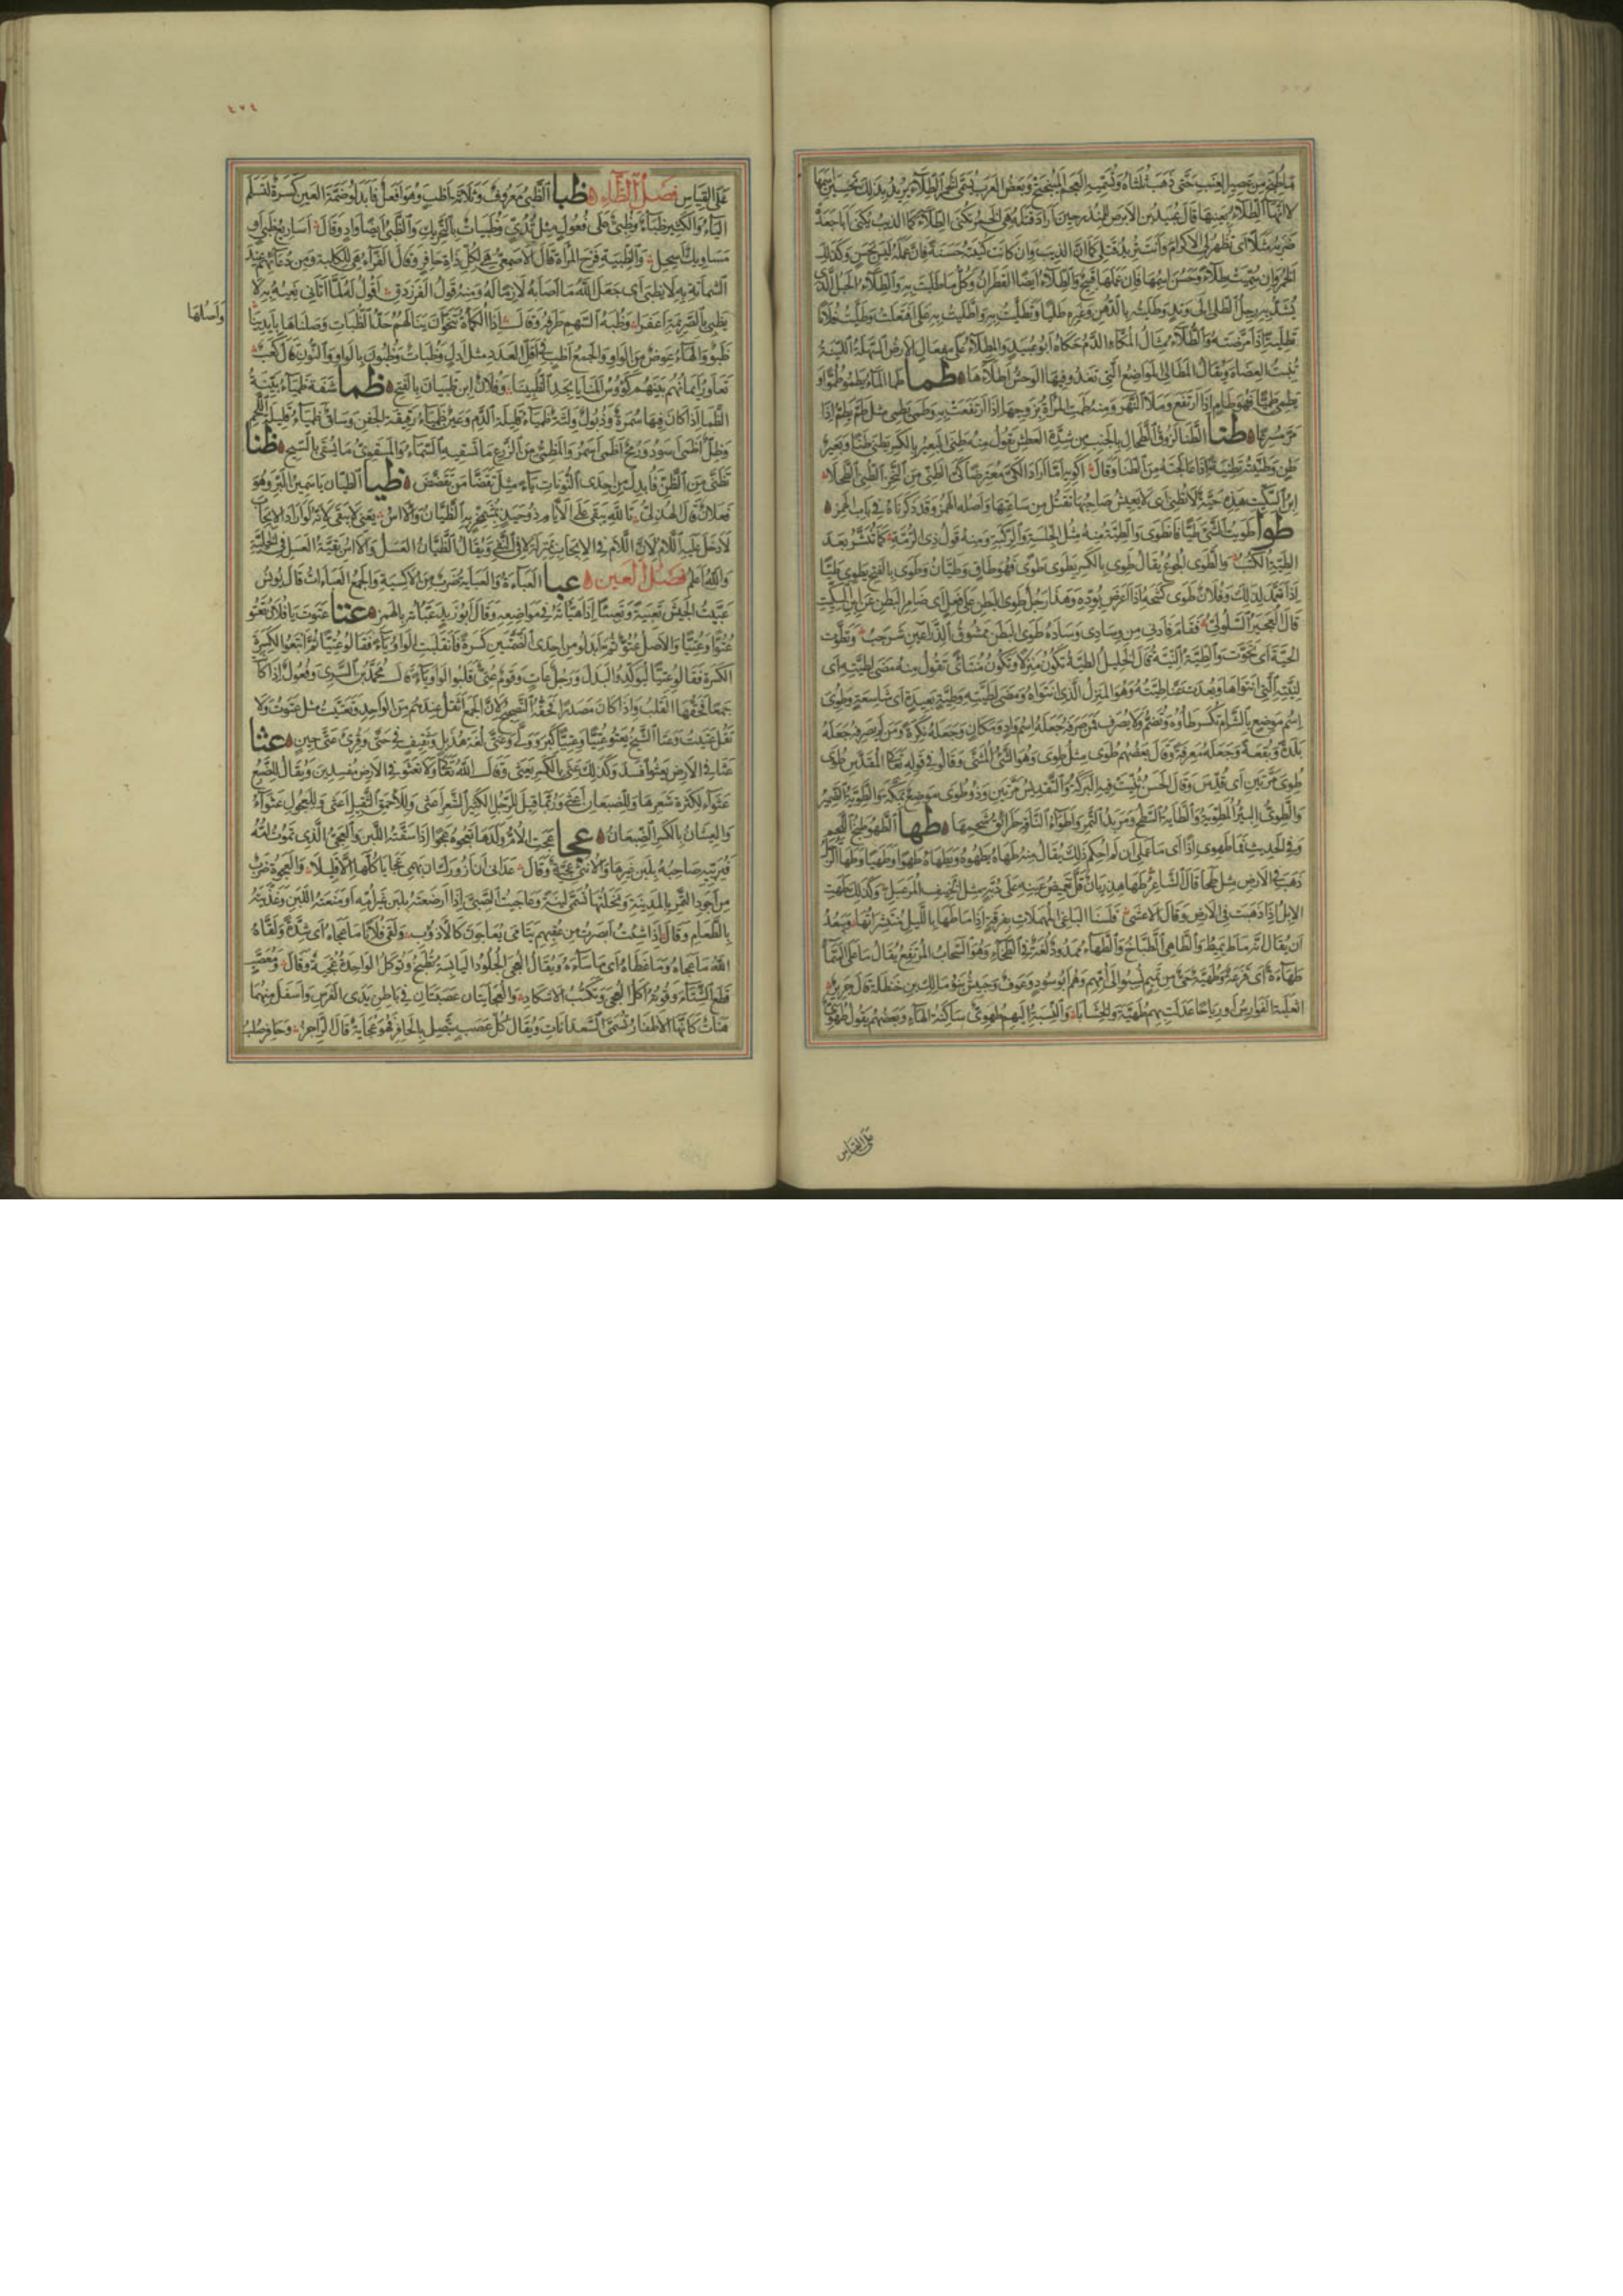 ما طبخ من عصير العنب حتى ذهب ثلثاه وتسميه العجم الميبختج وبعض العرب يسمى الخمر الطلاء يريد بذلك تحسين اسمها
لا انها الطلاء بعينها قال عبيد بن الابرص للمنذر حين اراد قتله هى الخمر تكنى الطلاء كما الذيب يكنى ابا جعدة
ضربه مثلا اى تظهر لى الاكرام وانت تريد قتلى كما ان الذيب وان كانت كنيته حسنة فان عمله ليس بحسن وكذلك
الخمر وان سميت طلاء وحسن اسمها فان عملها قبيح والطلاء ايضا القطران وكل ما طليت به والطلاء الحبل الذى
يشد به رجل الطلى الى وتد وطليته بالدهن وغيره طليا وتطليت به واطليت به على افتعلت وطليت فلانا
تطلية اذا مرضته والطلاء مثال المكاء الدم حكاه ابو عبيد والمطلاء على مفعال الارض السهلة اللينة
تنبت العضاه ويقال المطالى المواضع التى تغذو فيها الوحش اطلاءها طما طما الماء يطمو طموا و
يطمى طميا فهو طام اذا ارتفع وملأ النهر ومنه طمت المرأة بزوجها اذا ارتفعت به وطمى يطمى مثل طم يطم اذا
مر مسرعا طنا الطنا لزوق الطحال بالجنب من شدة العطش تقول منه طنى البعير بالكسر يطنى طنا وبعير
طن وطنيته تطنية اذا عالجته من الطنا وقال اكويه اما اراد الكى معترضا كى المطنى من النحز الطنى الطحلا
ابن السكيت هذه حية لا تطنى اى لا يعيش صاحبها تقتل من ساعتها واصله الهمز وقد ذكرناه فى باب الهمز
طوا طويت الشئ طيا فانطوى والطية منه مثل الجلسة والركبة ومنه قول ذى الرمة كما تنشر بعد
الطية الكتب والطوى الجوع يقال طوى بالكسر يطوى طوى فهو طاو وطيان وطوى بالفتح يطوى طيا
اذا تعمد لذلك وفلان طوى كشحه اذا اعرض بوده وهذا رجل طوى البطن على فعل اى ضامر البطن عن ابن السكيت
قال العجير السلولى فقام فادنى من وسادى وساده طوى البطن ممشوق الذراعين شرجب وتطوت
الحية اى تحوت والطية النية قال الخليل الطية تكون منزلا وتكون منتأى تقول منه مضى لطيته اى
لنيته التى انتواها وبعدت عنا طيته وهو المنزل الذى انتواه ومضى لطيته وطية بعيدة اى شاسعة وطوى
اسم موضع بالشام تكسر طاؤه وتضم ولا يصرف فمن صرفه جعله اسم واد ومكان وجعله نكرة ومن لم يصرفه جعله
بلدة وبقعة وجعله معرفة وقال بعضهم طوى مثل طوى وهو الشئ المثنى وقالوا فى قوله تعالى المقدس طوى
طوى مرتين اى قدس وقال الحسن ثنيت فيه البركة والتقديس مرتين وذو طوى موضع بمكة والطوية الضمير
والطوى البئر المطوية والطاية السطح ومربد التمر واطواء الناقة طرائق شحمها طها الطهو طبخ اللحم
وفى الحديث فما طهوى اذا اى ما عملى ان لم احكم ذلك يقال منه طهاه يطهوه ويطهاه طهوا وطهيا وطها الرجل
ذهب فى الارض مثل طحا قال الشاعر طها هذريان قل تغميض عينه على دبة مثل الخنيف المرعبل وكذلك طهت
الابل اذا ذهبت فى الارض وقال الاعشى فلسنا لباغى المهملات بقرفة اذا ما طها بالليل منتشراتها وبعد
ان يقال ثم ماط يميط والطاهى الطباخ والطهاء ممدود لغة فى الطخاء وهو السحاب المرتفع يقال ما على السماء
طهاءة اى قزعة وطهية حى من تميم نسبوا الى امهم وهم ابو سود وعوف وحبيش بنو مالك بن حنظلة قال جرير
اثعلبة الفوارس او رياحا عدلت بهم طهية والخشابا والنسبة اليهم طهوى ساكنة الهاء وبعضهم يقول طهوى
على القياس
٤٧٤
على القياس فصل الظاء ظبا الظبى معروف وثلاثة اظب وهو افعل فابدلوا ضمة العين كسرة لتسلم
الياء والكثير ظباء وظبى على فعول مثل ثدى وظبيات بالتحريك والظبى ايضا واد وقال اساريع ظبى او
مساويك اسحل والظبية فرج المرأة قال الاصمعى هى لكل ذات حافر وقال الفراء هى للكلبة ومن دعائهم عند
الشماتة به لا بظبى اى جعل الله ما اصابه لازما له ومنه قول الفرزدق اقول له لما اتانى نعيه به لا
بظبى بالصريمة اعفرا وظبة السهم طرفه وقال اذا الكماة تنحوا ان ينالهم حد الظبات وصلناها بايدينا
واصلها
ظبو والهاء عوض من الواو والجمع اظب فى اقل العدد مثل ادل وظبات وظبون بالواو والنون قال كعب
تعاور ايمانهم بينهم كؤوس المنايا بحد الظبينا وفلان ابن ظبيان بالفتح ظما شفة ظمياء بينة
الظما اذا كان فيها سمرة وذبول ولثة ظمياء قليلة الدم وعين ظمياء رقيقة الجفن وساق ظمياء قليلة اللحم
وظل اظمى اسود ورمح اظمى اسمر والمظمى من الزرع ما تسقيه السماء والمسقوى ما يسقى بالسيح ظنا
تظنى من الظن فابدل من احدى النونات ياء مثل تقضا من تقضض ظيا الظيان ياسمين البر وهو
فعلان قال الهذلى تالله يبقى على الايام ذو حيد بمشمخر به الظيان والاس يعنى لا يبقى لانه لو اراد الايجاب
لادخل عليه اللام لان اللام فى الايجاب بمنزلة لا فى النفى ويقال الظيان العسل والاس بقية العسل فى الخلية
والله اعلم فصل العين عبا العباءة والعباية ضرب من الاكسية والجمع العباءات قال يونس
عبيت الجيش تعبية وتعبيئا اذا هيأته فى مواضعه وقال ابو زيد عبأته بالهمز عتا عتوت يا فلان تعتو
عتوا وعتيا والاصل عتو ثم ابدلوا من احدى الضمتين كسرة فانقلبت الواو ياء فقالوا عتيا ثم اتبعوا الكسرة
الكسرة فقالوا عتيا ليؤكدوا البدل ورجل عات وقوم عتى قلبوا الواو ياء قال محمد بن السرى وفعول اذا كا
جمعا فحقها القلب واذا كان مصدرا فحقه التصحيح لان الجمع اثقل عندهم من الواحد وتعتيت مثل عتوت ولا
تقل عتيت وعتا الشيخ يعتو عتيا وعتيا كبر وولى وعتى لغة هذيل وثقيف فى حتى وقرئ عتى حين عثا
عثا فى الارض يعثو افسد وكذلك عثى بالكسر يعثى وقال الله تعالى ولا تعثوا فى الارض مفسدين ويقال للضبع
عثواء لكثرة شعرها وللضبعان اعثى وربما قيل للرجل الكثير الشعر اعثى وللاحمق الثقيل اعثى وللعجوز عثواء
والعثيان بالكسر الضبعان عجا عجت الام ولدها تعجوه عجوا اذا سقته اللبن والعجى الذى تموت امه
فيربيه صاحبه بلبن غيرها والانثى عجية وقال عدانى ان ازورك ان بهمى عجايا كلها الا قليلا والعجوة ضرب
من اجود التمر بالمدينة ونخلتها تسمى لينة وعاجيت الصبى اذا ارضعته بلبن غير امه او منعته اللبن وغذيته
بالطعام وقال اذا شئت ابصرت من عقبهم يتامى يعاجون كالاذؤب ولقى فلان ما عجاه اى شدة ولقاه
الله ما عجاه وما عظاه اى ما ساءه ويقال العجى الجلود اليابسة تطبخ وتوكل الواحدة عجية وقال ومعصب
قطع الشتاء وقوته اكل العجى وتكسب الاشكاد والعجايتان عصبتان فى باطن يدى الفرس واسفل منهما
هنات كانها الاظفار تسمى السعدانات ويقال كل عصب يتصل بالحافر فهو عجاية قال الراجز وحافر صلب